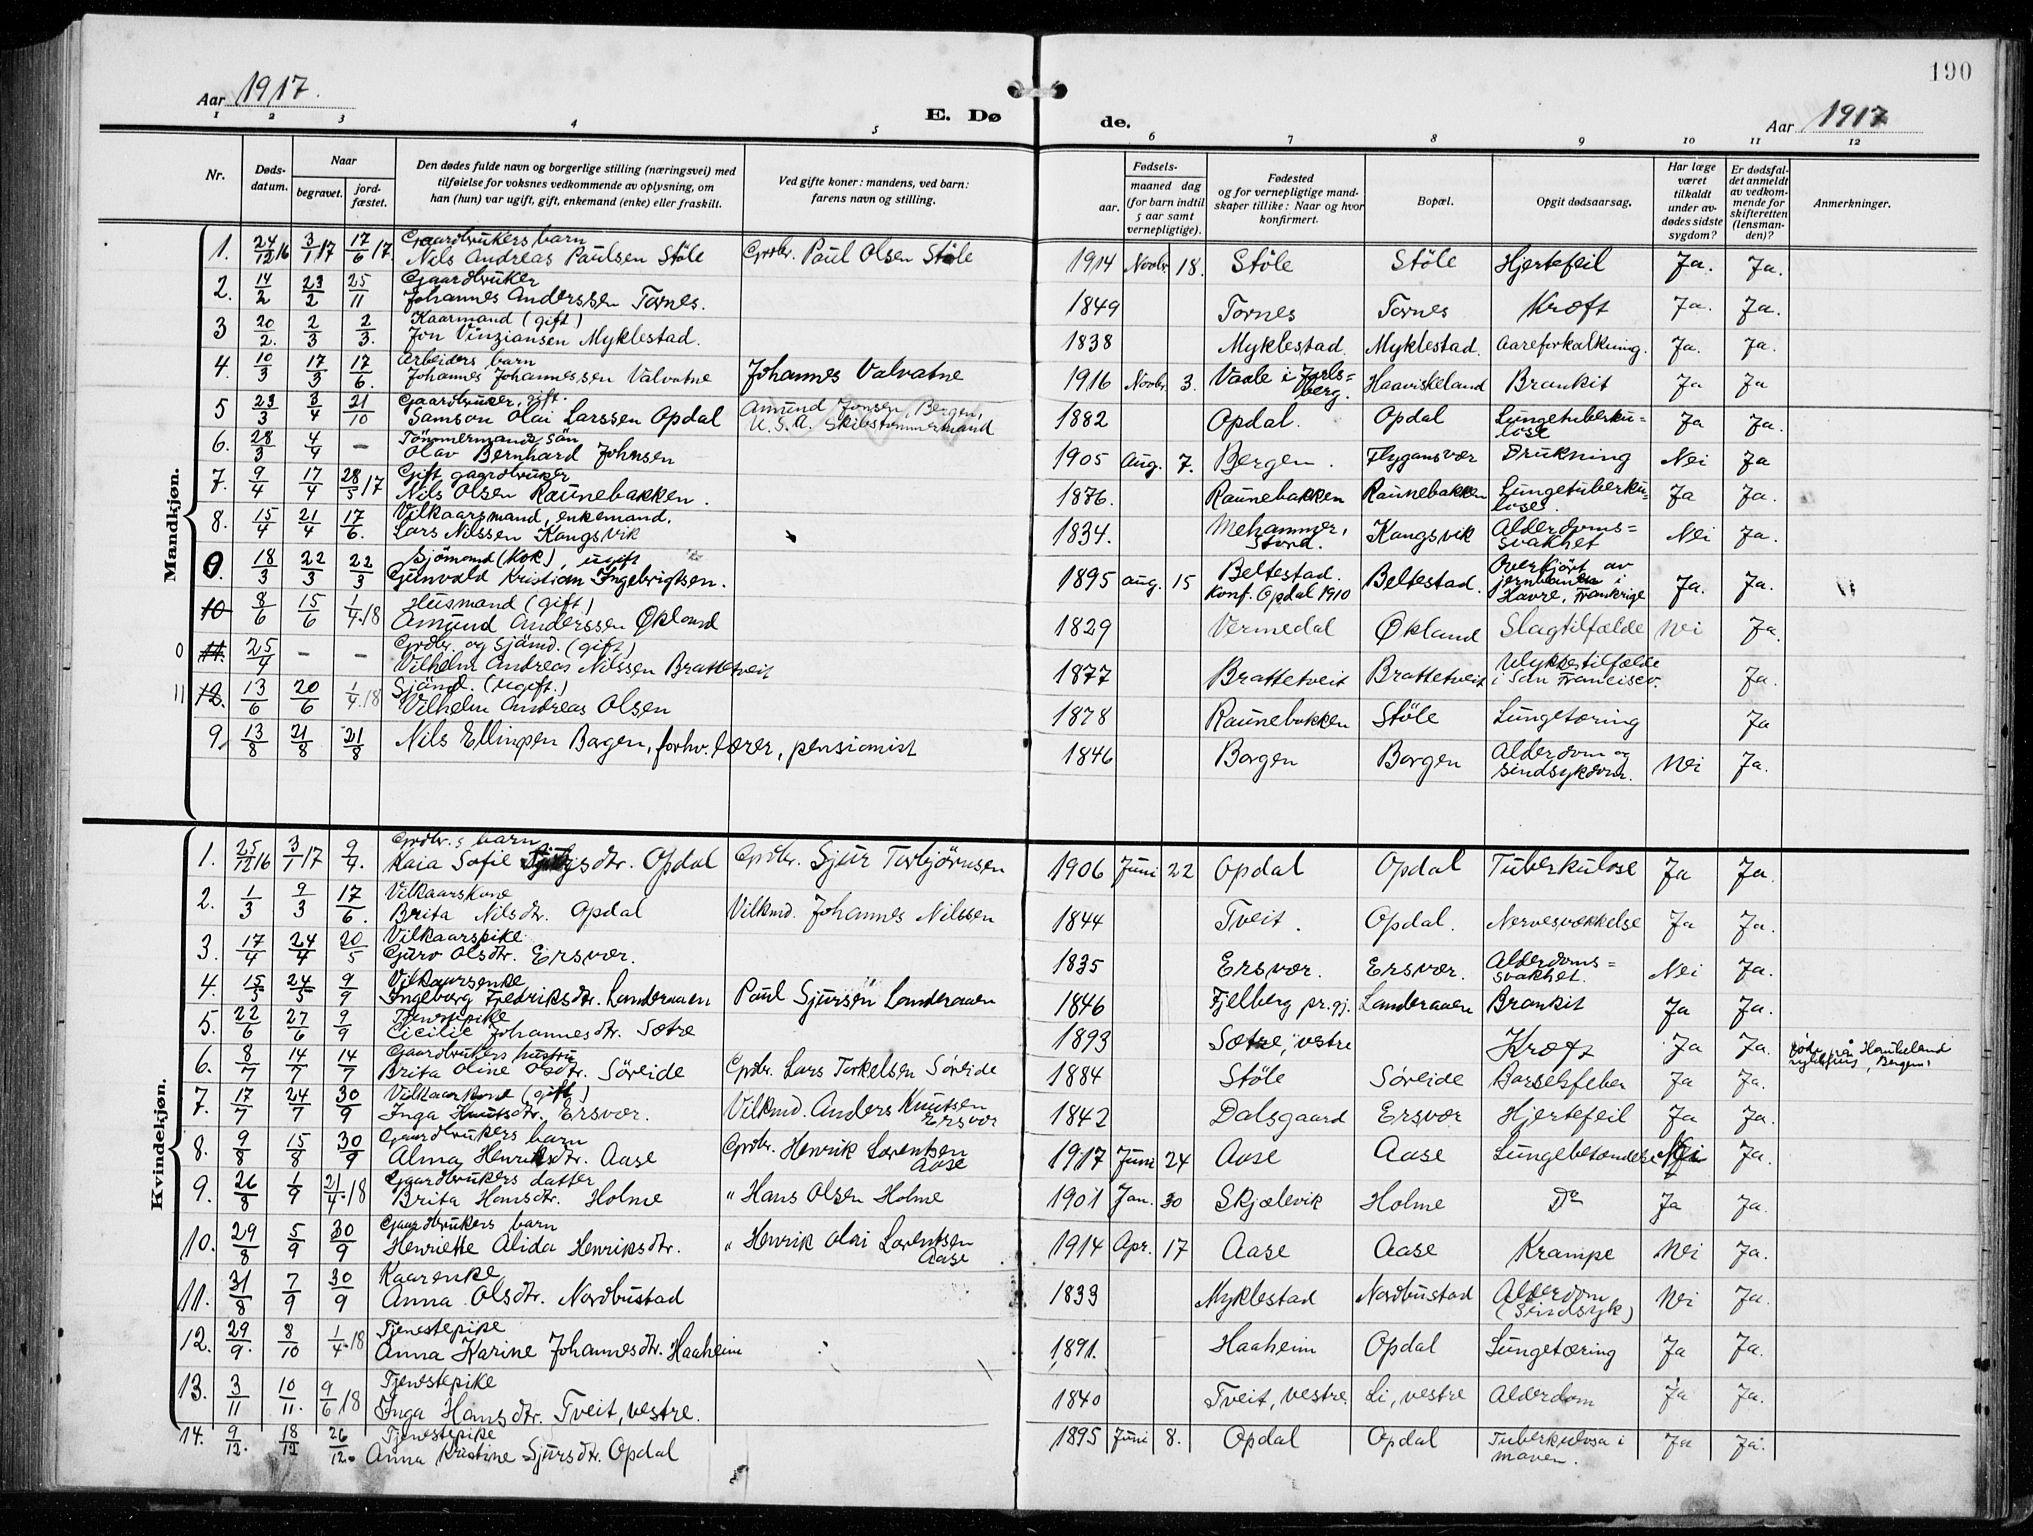 190
Aar 1917.
E. Dø
de.
Aar 1917
1 2 3 4 5 6 7 8 9 10 11 12
Nr.
Døds-
datum.
Naar
begravet.
jord-
fæstet.
Den dødes fulde navn og borgerlige stilling (næringsvei) med
tilføielse for voksnes vedkommende av oplysning, om
han (hun) var ugift, gift, enkemand (enke) eller fraskilt.
Ved gifte koner: mandens, ved barn:
farens navn og stilling.
Fødsels-
aar.
maaned dag
(for barn indtil
5 aar samt
vernepligtige).
Fødested
og for vernepligtige mand-
skaper tillike: Naar og hvor
konfirmert.
Bopæl.
Opgit dødsaarsag.
Har læge
været
tilkaldt
under av-
dødes sidste
sygdom?
Er dødsfal-
det anmeldt
av vedkom-
mende for
skifteretten
(lensman-
den)?
Anmerkninger.
Mandkjøn.
Gaardbrukers barn
1. 24/12 16 3/1 17 17/6 17. Nils Andreas Paulsen Støle Grdbr. Paul Olsen Støle 1914 Novbr. 18. Støle Støle Hjertefeil Ja. Ja.
Gaardbruker
2. 14/2 23/2 25/11 Johannes Anderssen Tornes. 1849 Tornes Tornes Kræft Ja. Ja.
Kaarmand (gift)
3 20/2. 2/3 2/3. Jon Vinziansen Myklestad. 1838 Myklestad. Myklestad. Aareforkalkning. Ja. Ja.
Arbeiders barn
4. 10/3 17/3 17/6. Johannes Johannessen Valvatne Johannes Valvatne 1916 Novbr. 3. Vaale i Jarls=
berg. Haaviskeland Bronkit Ja Ja
Gaardbruker, gift.
5 23/3 3/4 21/10 Samson Olai Larssen Opdal 1882 Opdal. Opdal Lungetuberku=
lose Ja Ja.
Amund Jonsen, Bergen,
U.S.A. Skibstømmermand
Tømmermands søn
6. 28/3 4/4 – Olav Bernhard Johnsen 1905 Aug. 7. Bergen. Flygansvær Drukning Nei Ja
Gift gaardbruker
7. 9/4 17/4 28/5 17 Nils Olsen Raunebakken. 1876. Raunebakken Raunebakken Lungetuberku=
lose. Ja Ja.
Vilkaarsmand, enkemand.
8. 15/4 21/4 17/6. Lars Nilssen Kongsvik 1834. Mehammer,
Stord. Kongsvik Alderdoms=
svakhet Nei Ja.
Sjömand (Kok), ugift
9. 18/3 22/3 22/3 Gunvald Kristian Ingebrigtsen. 1895 aug. 15 Beltestad.
Konf. Opdal 1910 Beltestad. Overkjört av
jernbanen i
Havre, Frankrige Ja. Ja.
Husmand (gift)
10 8/6 15/6 1/4.18 Amund Anderssen Økland 1829 Vermedal Økland Slagtilfælde Nei Ja.
Grdbr. og Sjømd. (gift)
0 11. 25/4 – – Vilhelm Andreas Nilssen Brattetveit 1877 Brattetveit Brattetveit Ulykkestilfælde
i San Francisco. Ja.
Sjömd. (ugift.)
11 12. 13/6 20/6 1/4.18 Vilhelm Andreas Olsen 1878 Raunebakken Støle Lungetæring Ja
9. 13/8 21/8 21/8 Nils Ellingsen Borgen, forhv. lærer, pensionist 1846 Borgen Borgen Alderdom og
sindsykdom. Nei Ja.
Kvindekjøn.
Grdbr.s barn
1. 25/12 16 3/1 17 9/4. Kaia Sofie Sjursdtr. Opdal Grdbr. Sjur Torbjørnsen 1906 Juni 22 Opdal Opdal Tuberkulose Ja Ja.
Vilkaarskone
2. 1/3 9/3 17/6. Brita Nilsdtr. Opdal Vilkmd. Johannes Nilssen 1844 Tveit. Opdal. Nervesvækkelse Ja Ja.
Vilkaarspike
3. 17/4 24/4 20/5 Guro Olsdtr. Ersvær. 1835 Ersvær. Ersvær. Alderdoms=
svakhet. Nei Ja.
Vilkaarsenke
4. 15/5 24/5 9/9 Ingeborg Fredriksdtr. Landeraaen Paul Sjursen Landeraaen 1846 Fjelberg pr.gj. Landeraaen Bronkit Ja Ja.
Tjenestepike
5. 22/6 27/6 9/9 Cicilie Johannesdtr. Sætre 1893 Sætre, vestre Kræft Ja Ja. Döde på Haukeland
sykehus, Bergen.
Gaardbrukers hustru
6. 8/7 14/7 14/7 Brita Oline Olsdtr. Söreide Grdbr. Lars Torkelsen Söreide 1884 Støle Söreide Barselfeber Ja Ja.
Vilkaarkone (gift)
7. 17/7 24/7 30/9 Inga Knutsdtr. Ersvær. Vilkmd. Anders Knutsen
Ersvær 1842 Dalsgaard Ersvær Hjertefeil Ja Ja.
Gaardbrukers barn
8. 9/8 15/8 30/9 Alma Henriksdtr. Aase Grdbr. Henrik Lorentsen
Aase 1917 Juni 24 Aase Aase Lungebetændelse Nei Ja.
Gaardbrukers datter
9. 26/8 1/9 21/4.18 Brita Hansdtr. Holme " Hans Olsen Holme 1901 Jan. 30 Skjælevik Holme Do Ja Ja.
Gaardbrukers barn
10. 29/8 5/9 30/9 Henriette Alida Henriksdtr. " Henrik Olai Lorentsen
Aase 1914 Apr. 17 Aase Aase Krampe Nei Ja.
Kaarenke
11. 31/8 7/9 30/9 Anna Olsdtr. Nordbustad 1833 Myklestad Nordbustad Alderdom
(Sindsyk) Nei Ja.
Tjenestepike
12. 29/9. 8/10 1/4.18 Anna Karine Johannesdtr. Haaheim 1891. Haaheim Opdal Lungetæring Ja Ja.
Tjenestepike
13. 3/11 10/11. 9/6 18 Inga Hansdtr. Tveit, vestre. 1840 Tveit, vestre. Li, vestre Alderdom Ja Ja.
Tjenestepike
14. 9/12. 18/12 26/12. Anna Kristine Sjursdtr. Opdal 1895 Juni 8. Opdal Opdal Tuberkulosa i
maven. Ja Ja.